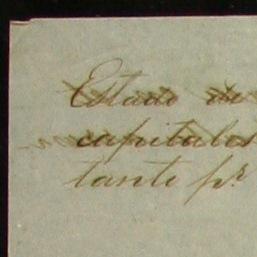 Estado de
capitales
tanto pr